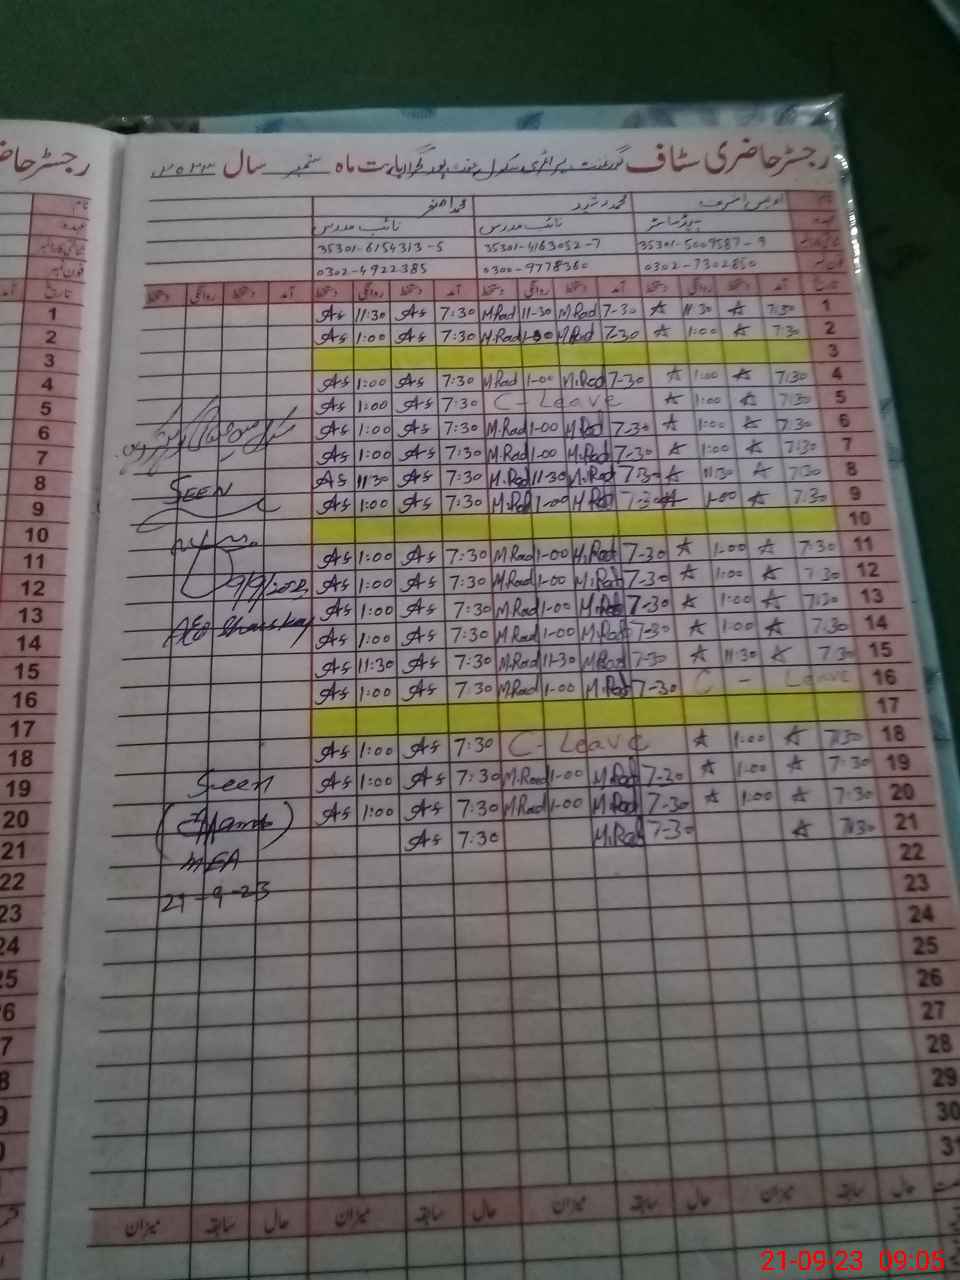 رجسٹر حاضری سٹاف گورنمنٹ پرائمری سکول بابت ماہ ستمبر سال ۲۰۲۳
نام اویس اشرف محمد رشید محمد اصغر
عہدہ ہیڈ ماسٹر نائب مدرس نائب مدرس
35301-5009587-9 35301-4163052-7 35301-6154313-5
فون نمبر 0302-7302850 0300-9778360 0302-4922385
تاریخ آمد دستخط روانگی دستخط آمد دستخط روانگی دستخط آمد دستخط روانگی دستخط آمد دستخط روانگی دستخط
As 11:30 As 7:30 M.Rad 11-30 M.Rad 7-30 11:30 7:30 1
As 1:00 As 7:30 M.Rad 1-00 M.Rad 7-30 1:00 7:30 2
3
As 1:00 As 7:30 M.Rad 1-00 M.Rad 7-30 1:00 7:30 4
As 1:00 As 7:30 C- Leave 1:00 7:30 5
As 1:00 As 7:30 M.Rad 1-00 M.Rad 7-30 1:00 7:30 6
As 1:00 As 7:30 M.Rad 1-00 M.Rad 7-30 1:00 7:30 7
As 11:30 As 7:30 M.Rad 11-30 M.Rad 7-30 11:30 7:30 8
As 1:00 As 7:30 M.Rad 1-00 M.Rad 7-30 1:00 7:30 9
10
As 1:00 As 7:30 M.Rad 1-00 M.Rad 7-30 1:00 7:30 11
As 1:00 As 7:30 M.Rad 1-00 M.Rad 7-30 1:00 7:30 12
As 1:00 As 7:30 M.Rad 1-00 M.Rad 7-30 1:00 7:30 13
As 1:00 As 7:30 M.Rad 1-00 M.Rad 7-30 1:00 7:30 14
As 11:30 As 7:30 M.Rad 11-30 M.Rad 7-30 11:30 7:30 15
As 1:00 As 7:30 M.Rad 1-00 M.Rad 7-30 C - Leave 16
17
As 1:00 As 7:30 C- Leave 1:00 7:30 18
As 1:00 As 7:30 M.Rad 1-00 M.Rad 7-30 1:00 7:30 19
As 1:00 As 7:30 M.Rad 1-00 M.Rad 7-30 1:00 7:30 20
As 7:30 M.Rad 7-30 7:30 21
22
23
24
25
26
27
28
29
30
31
SEEN
AEO
Seen
MEA
21-9-23
حال سابقہ میزان حال سابقہ میزان حال سابقہ میزان
21-09-23 09:05